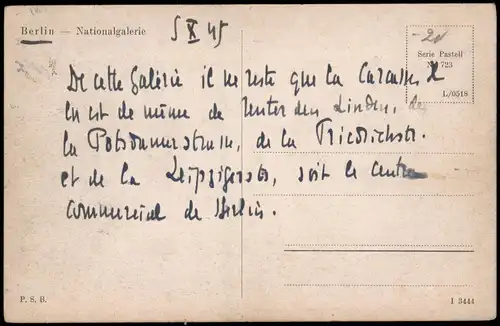 Berlin — Nationalgalerie
5 X 45
-20
Serie Pastell
No. 723
L/0518
De cette Galerie il ne reste que la Carcasse. Il
en est de même de Unter den Linden, de
la Potsdamerstrasse, de la Friedrichstr.
et de la Leipzigerstr, soit le centre
commercial de Berlin.
P. S. B.
I 3444